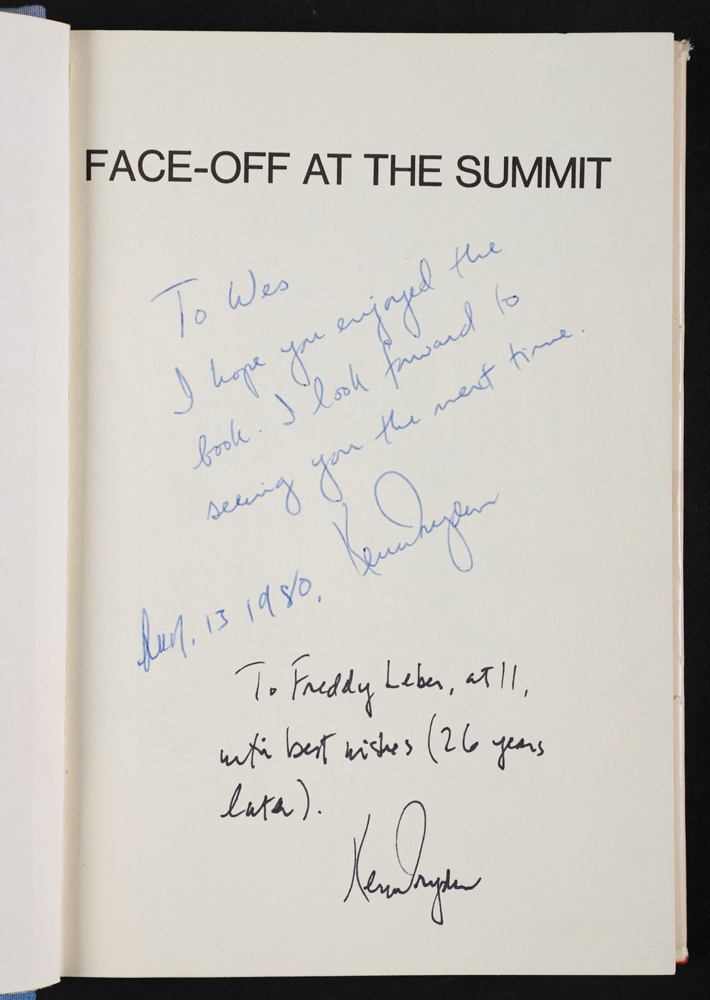 FACE-OFF AT THE SUMMIT
To Wes
I hope you enjoyed the
book. I look forward to
seeing you the next time.
Ken Dryden
13 1980.
To Freddy Leber, at 11,
with best wishes (26 years
later).
Ken Dryden